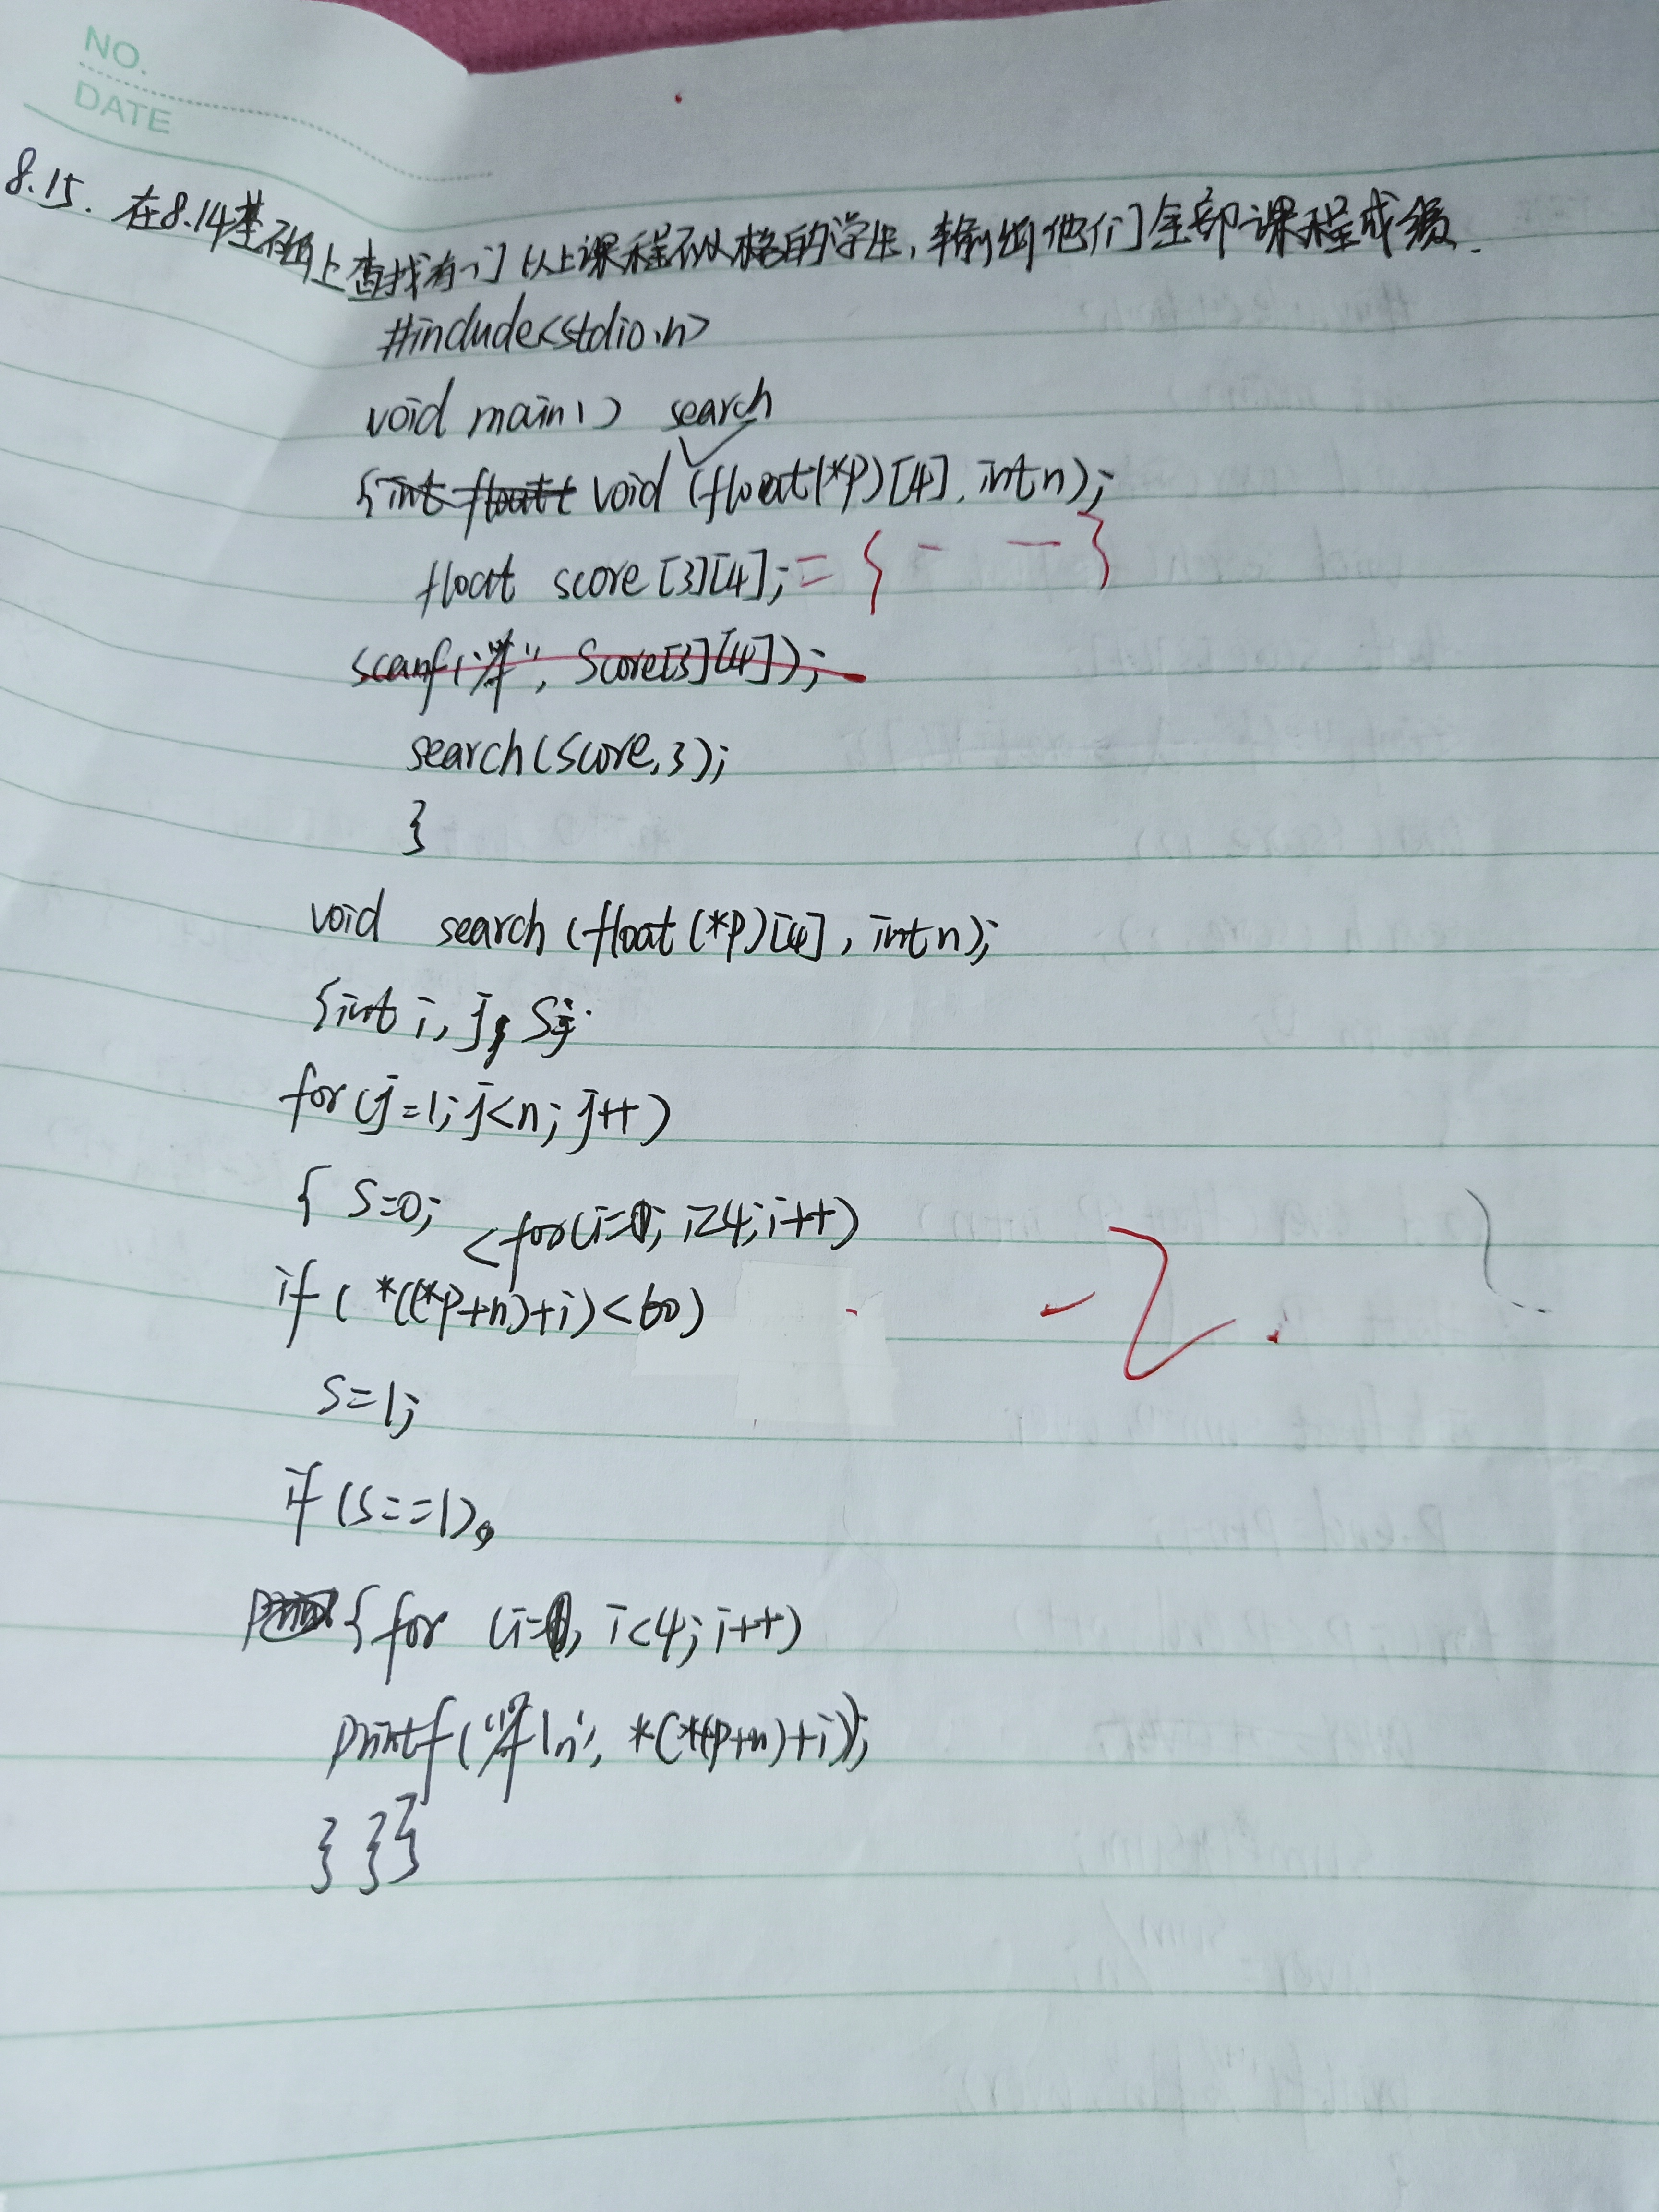 NO.
DATE
8.15. 在8.14基础上查找有一门以上课程不及格的学生,输出他们全部课程成绩.
#include<stdio.h>
void main()
search
{int float( void (float(*p)[4], int n);
float score[3][4]; = { - - }
scanf("%f", Score[3][4]);
search(score,3);
}
void search(float(*p)[4], int n);
{int i, j, S;
for(j=1; j<n; j++)
{ S=0;
<for(i=0; i<4; i++)
if( *((*p+n)+i)<60)
S=1;
if(S==1)
{for (i=0, i<4; i++)
printf("%f\n", *(*(p+n)+i));
} } }